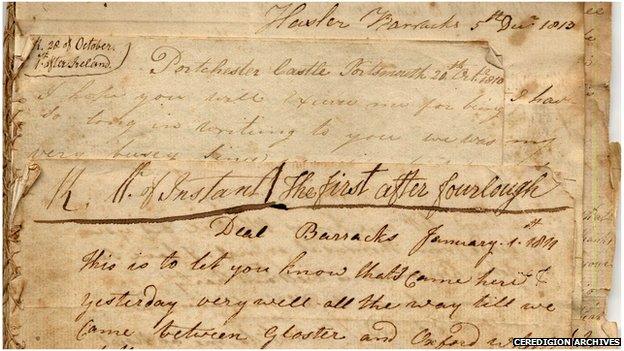 Haslar Barracks 5th Decr 1810
R. 28 of October.
1st after Ireland.
Portchester Castle Portsmouth 20th Octr 1810
I hope you will excuse me for being
I have
so long in writing to you we was
my
very busy
R. of Instant The first after fourlough
Deal Barracks January 1st 1811
This is to let you know that I came here
yesterday very well all the way till we
came between Gloster and Oxford
CEREDIGION ARCHIVES